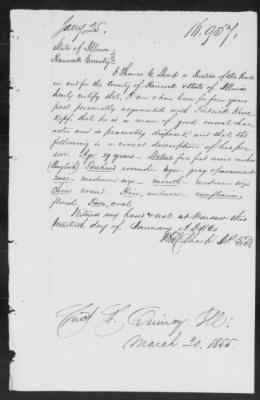 Jany 25.
16.957,
State of Illinois
Hancock County
I Thomas C. Sharp a Justice of the Peace
in and for the County of Hancock & State of Illinois
hereby certify that I am & have been for four years
past personally acquainted with
that he is a man of good moral char-
acter and is peaceably disposed, and that the
following is a correct description of his per-
son. Age 29 years— Stature five feet nine inches
(English) Forehead round Eyes gray
nose— medium size— mouth— medium size
Chin round Hair, auburn— complexion,
florid Face, oval.
Witness my hand & seal at Warsaw this
twentieth day of January A.D. 1855
Thos C Sharp J.P.
Quincy Ill:
March 20, 1855.